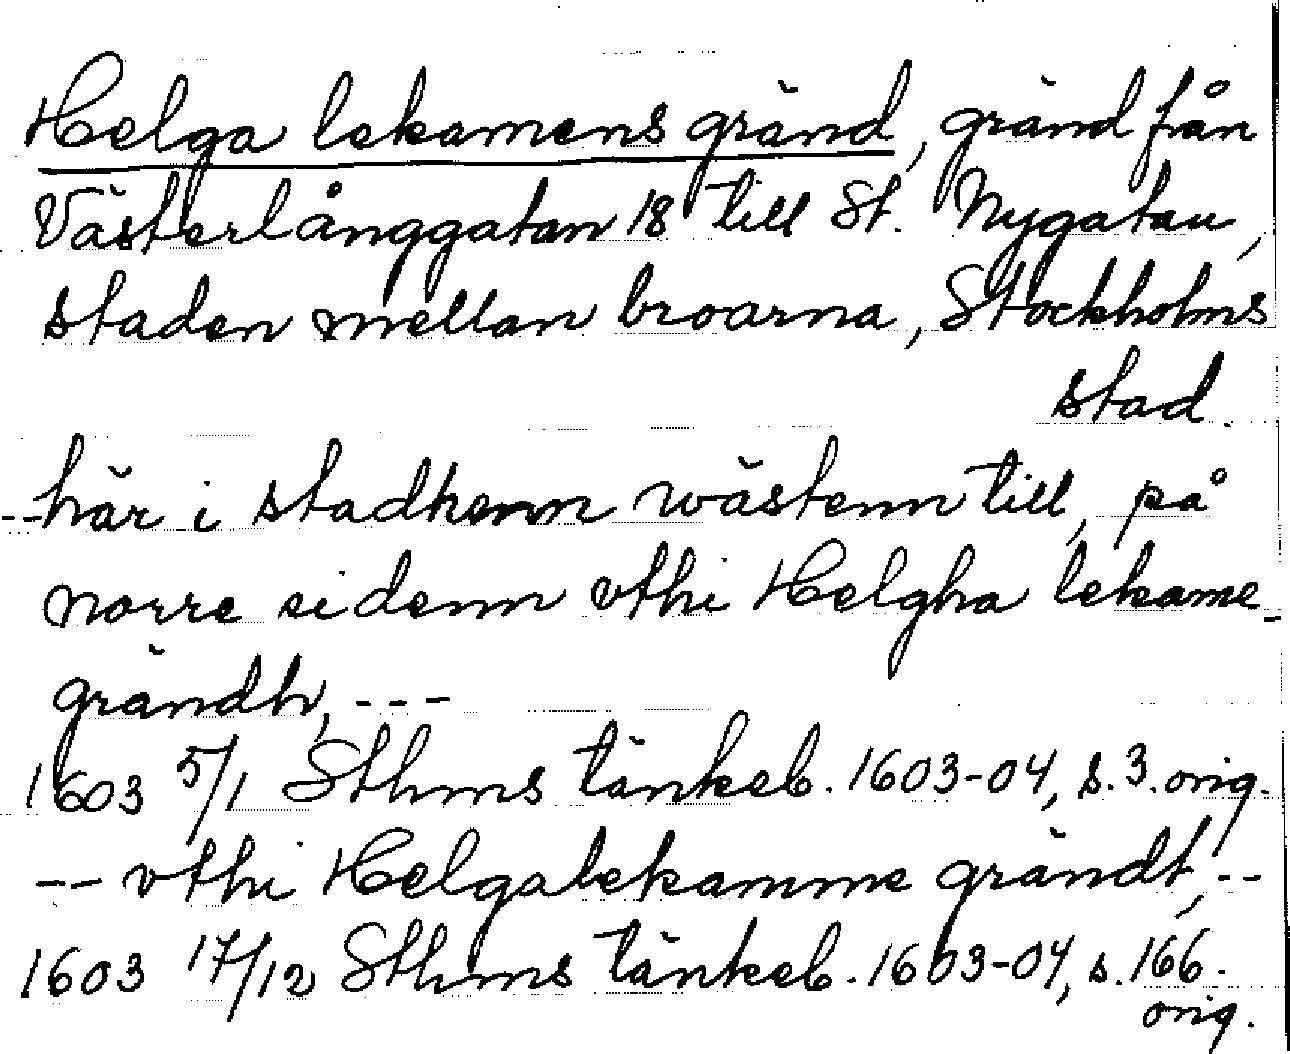 Helga lekamens gränd, gränd från
Västerlånggatan 18 till St. Nygatan,
staden mellan broarna, Stockholms
stad.
--här i stadhenn wästenn till, på
norre sidenn vthi Helgha lekame-
grändh, ---
1603 5/1 Sthms tänkeb. 1603-04, s. 3. orig.
-- vthi Helgalekamme grändt, --
1603 17/12 Sthms tänkeb. 1603-04, s. 166.
orig.